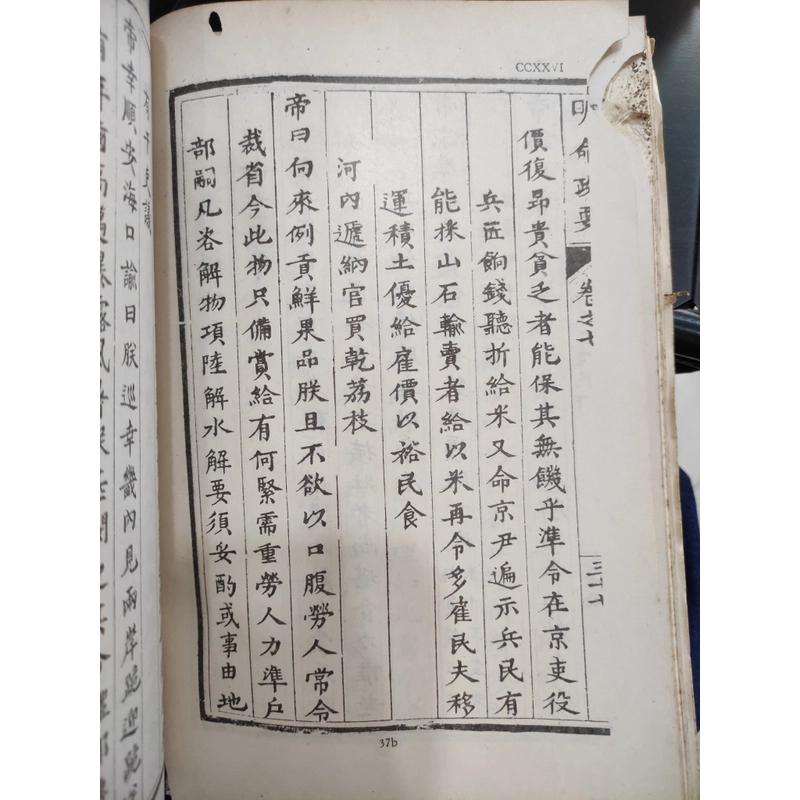 CCXXVI
明命政要
卷之七
三十七
價復昂貴貧乏者能保其無饑乎準令在京吏役
兵匠餉錢聽折給米又命京尹遍示兵民有
能採山石輸賣者給以米再令多雇民夫移
運積土優給雇價以裕民食
河內遞納官買乾荔枝
帝曰向來例貢鮮果品朕且不欲以口腹勞人常令
裁省今此物只備賞給有何緊需重勞人力準戶
部嗣凡各解物項陸解水解要須妥酌或事由地
37b
帝幸順安海口諭曰朕巡幸畿內見兩岸跪迎